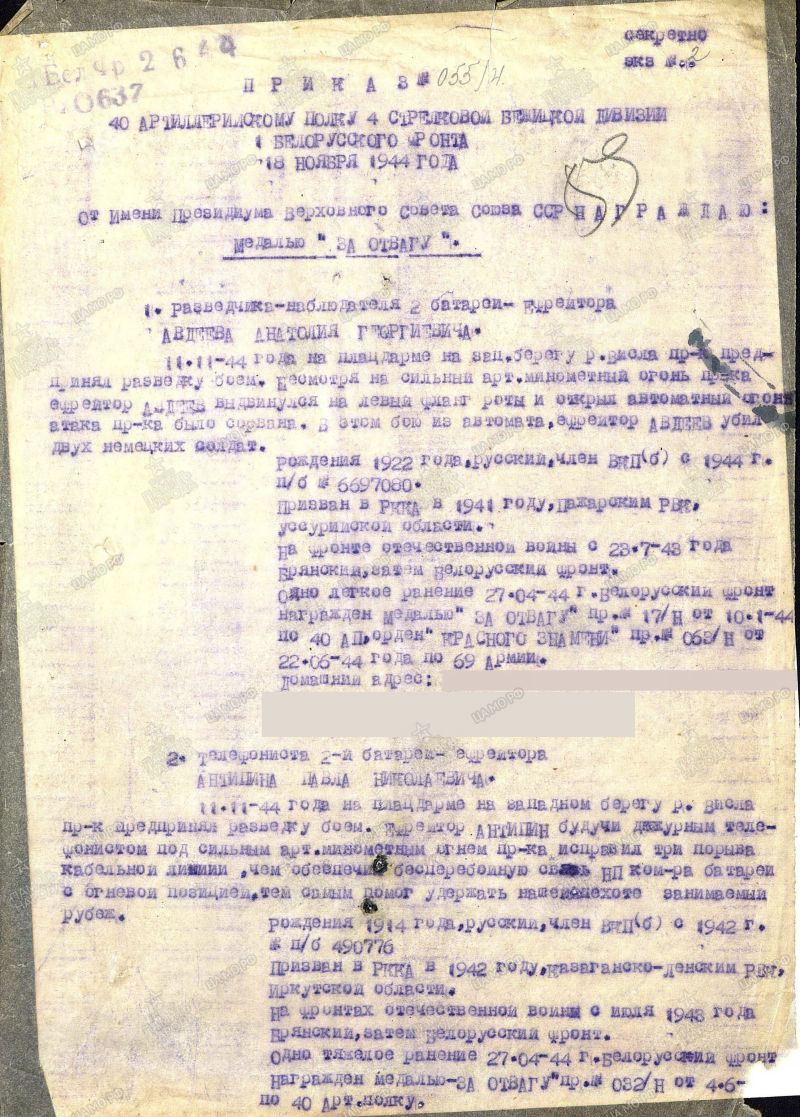 секретно
экз №.2
1 Бел фр 2 6 4 4
0637
П Р И К А З № 055/н.
40 АРТИЛЛЕРИЙСКОМУ ПОЛКУ 4 СТРЕЛКОВОЙ БЕЖИЦКОЙ ДИВИЗИИ
1 БЕЛОРУССКОГО ФРОНТА
18 НОЯБРЯ 1944 ГОДА
От Имени Президиума Верховного Совета Союза ССР Н А Г Р А Ж Д А Ю :
Медалью " ЗА ОТВАГУ ".
1. Разведчика-наблюдателя 2 батареи- Ефрейтора
АВДЕЕВА АНАТОЛИЯ ГЕОРГИЕВИЧА.
11.11-44 года на плацдарме на зап.берегу р.Висла пр-к пред-
принял разведку боем. Несмотря на сильный арт.минометный огонь пр-ка
ефрейтор АВДЕЕВ выдвинулся на левый фланг роты и открыл автоматный огонь
атака пр-ка было сорвана. В этом бою из автомата,ефрейтор АВДЕЕВ убил
двух немецких солдат.
Рождения 1922 года,русский,член ВКП(б) с 1944 г.
п/б № 6697080.
Призван в РККА в 1941 году,Пажарским РВК,
уссурийской области.
На фронте отечественной войны с 23.7-43 года
Брянский,затем Белорусский фронт.
Одно легкое ранение 27-04-44 г.Белорусский фронт
награжден Медалью" ЗА ОТВАГУ" пр.№ 17/Н от 10.1-44
по 40 АП,орден" КРАСНОГО ЗНАМЕНИ" пр.№ 063/Н от
22.06-44 года по 69 Армии.
Домашний адрес:
2. Телефониста 2-й батареи- ефрейтора
АНТИПИНА ПАВЛА НИКОЛАЕВИЧА.
11.11-44 года на плацдарме на западном берегу р. Висла
пр-к предпринял разведку боем. Ефрейтор АНТИПИН будучи дежурным теле-
фонистом под сильным арт.минометным огнем пр-ка исправил три порыва
кабельной линиии ,чем обеспечил бесперебойную связь НП ком-ра батареи
с огневой позицией,тем самым помог удержать нашейпехоте занимаемый
рубеж.
Рождения 1914 года,русский,член ВКП(б) с 1942 г.
№ п/б 490776
Призван в РККА в 1942 году,Казаганско-Ленским РВК,
Иркутской области.
На фронтах отечественной войны с июля 1943 года
Брянский,затем Белорусский фронт.
Одно тяжелое ранение 27.04-44 г.Белорусский фронт
Награжден медалью-ЗА ОТВАГУ"пр.№ 032/Н от 4.6-
по 40 Арт.полку.